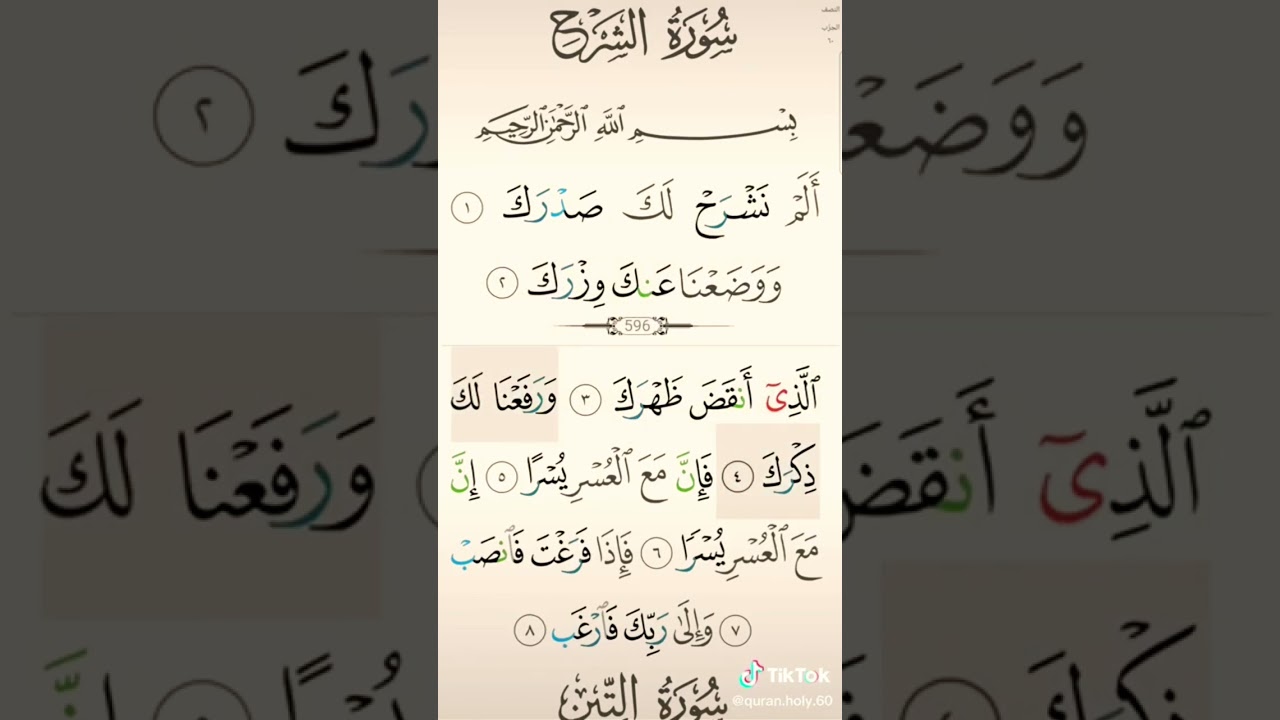 النصف
الحزب
٦٠
سُورَةُ الشَّرْحِ
بِسْمِ ٱللَّهِ ٱلرَّحْمَٰنِ ٱلرَّحِيمِ
أَلَمْ نَشْرَحْ لَكَ صَدْرَكَ ١
وَوَضَعْنَا عَنكَ وِزْرَكَ ٢
596
ٱلَّذِىٓ أَنقَضَ ظَهْرَكَ ٣ وَرَفَعْنَا لَكَ
ذِكْرَكَ ٤ فَإِنَّ مَعَ ٱلْعُسْرِ يُسْرًا ٥ إِنَّ
مَعَ ٱلْعُسْرِ يُسْرًا ٦ فَإِذَا فَرَغْتَ فَٱنصَبْ
٧ وَإِلَىٰ رَبِّكَ فَٱرْغَب ٨
سُورَةُ التِّينِ
TikTok
@quran.holy.60